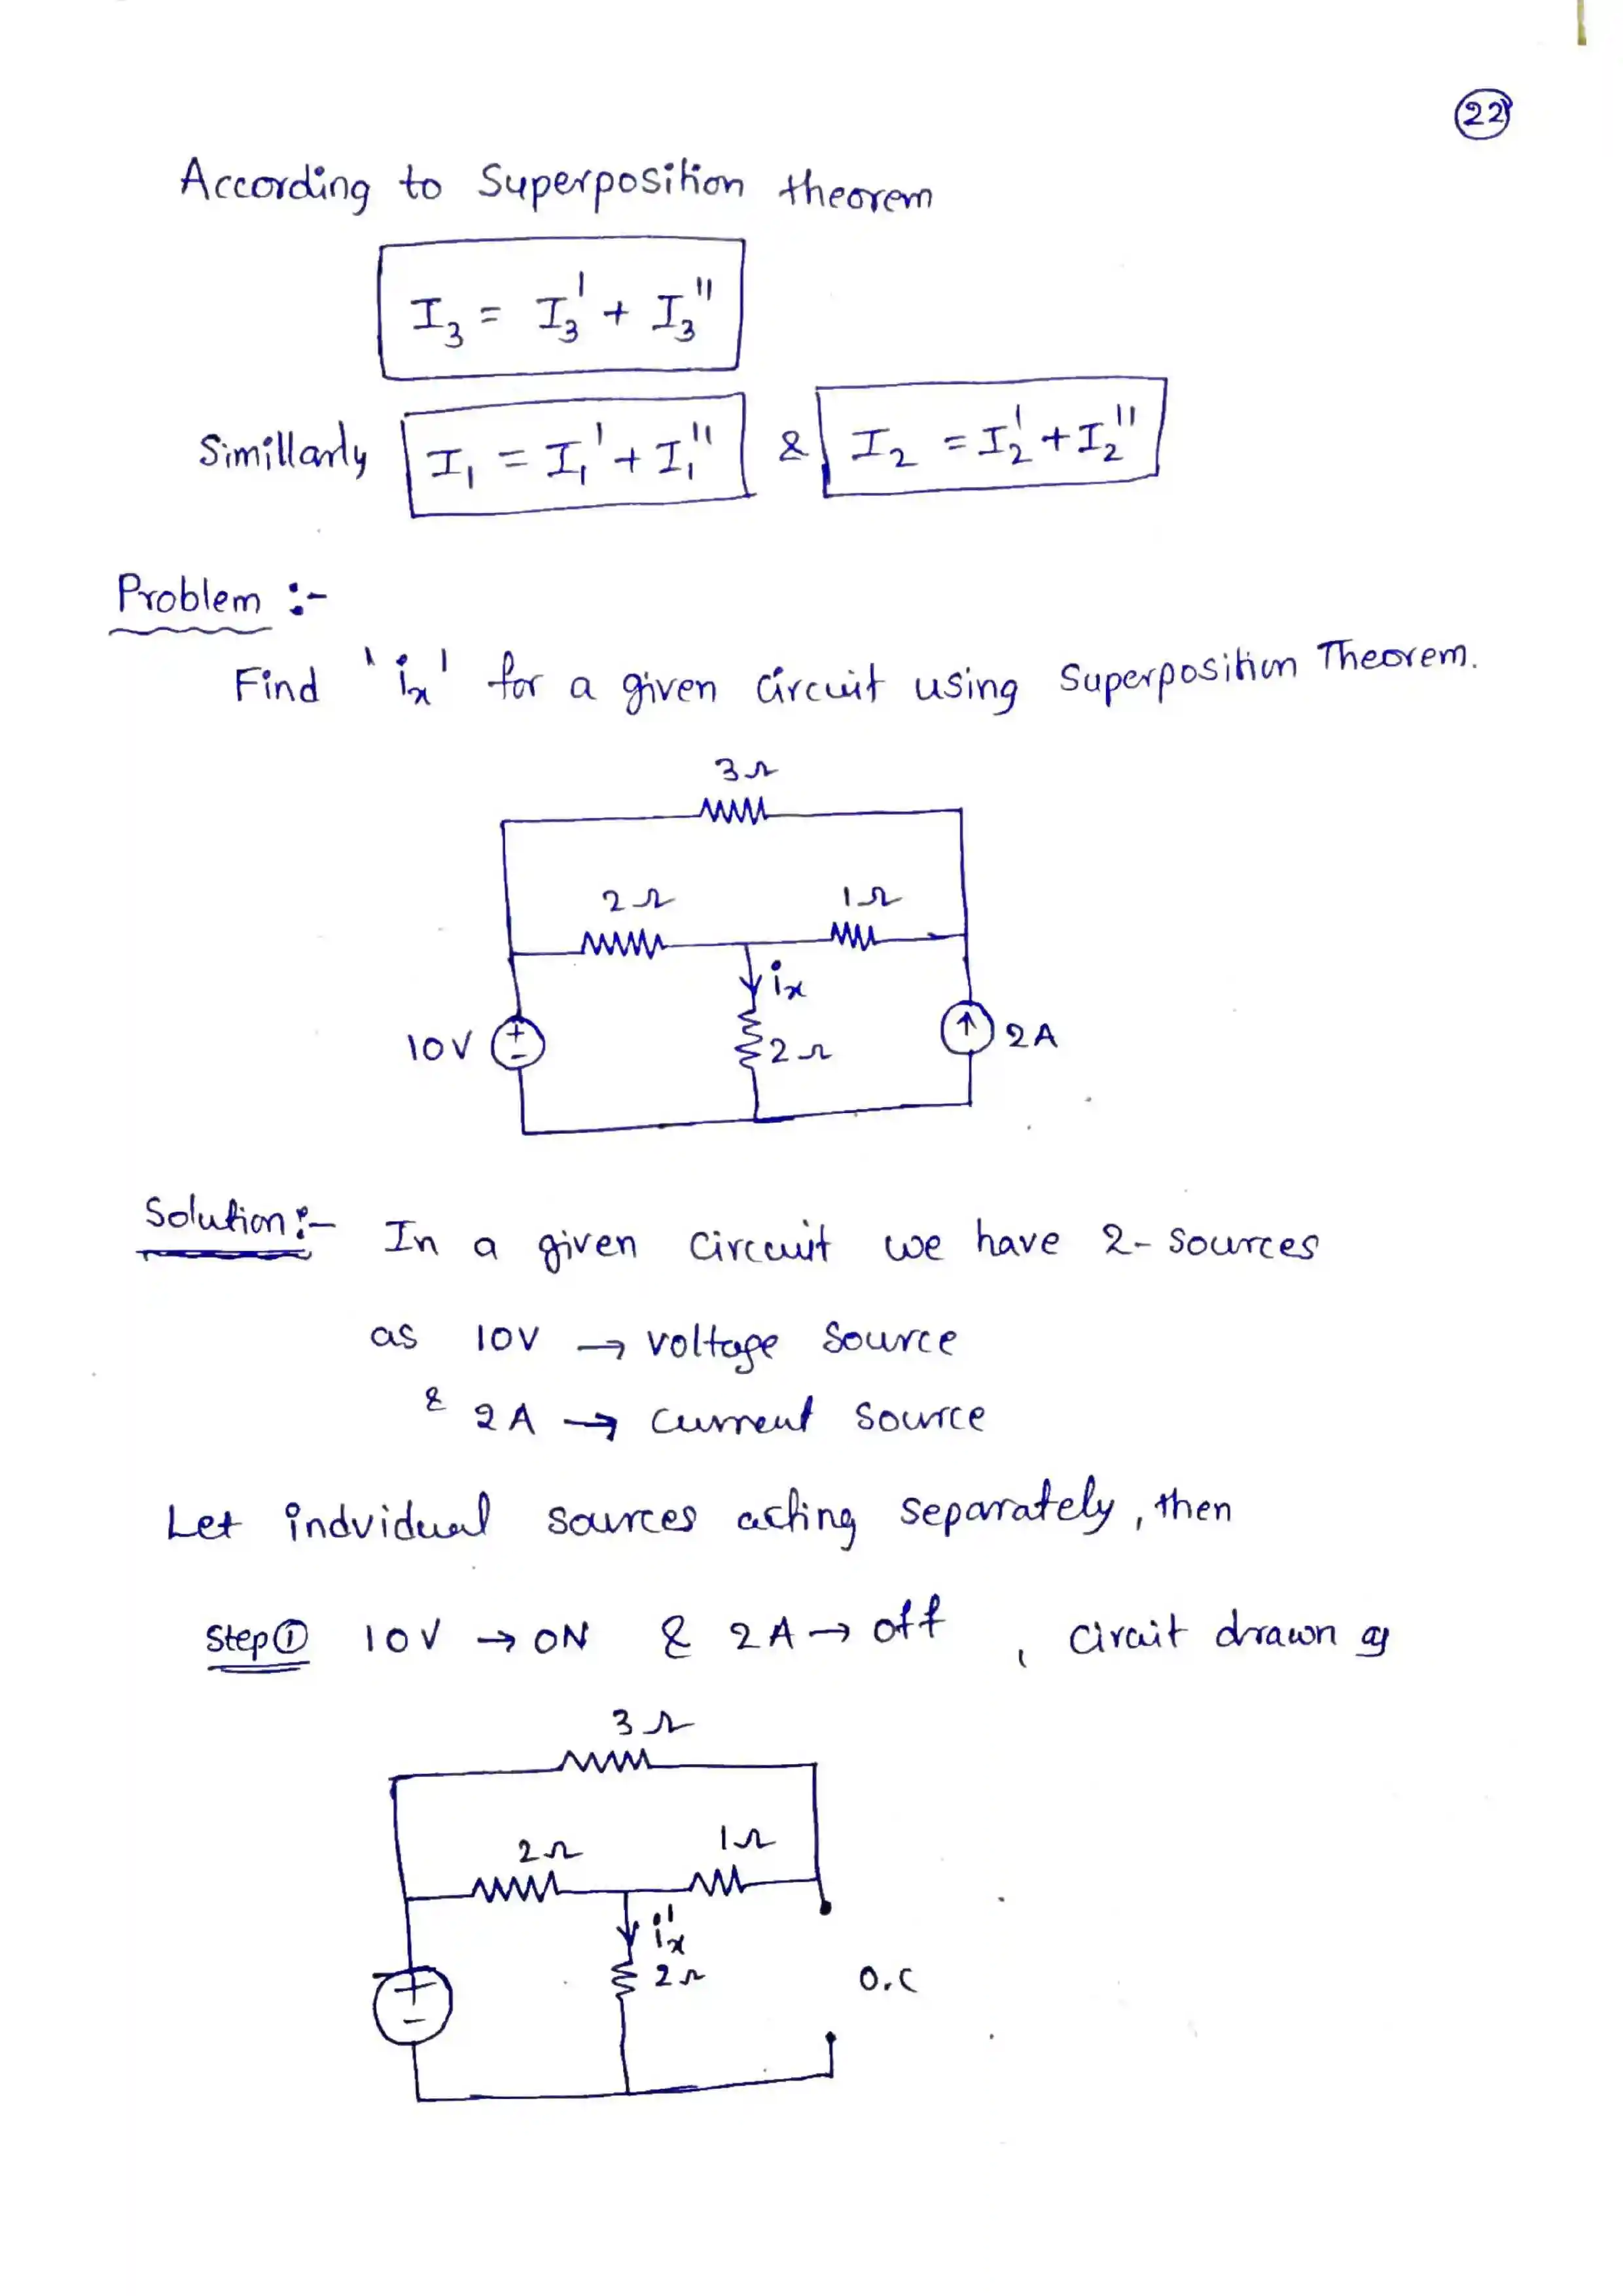 22
According to Superposition theorem
I₃ = I₃' + I₃"
Simillarly I₁ = I₁' + I₁" & I₂ = I₂' + I₂"
Problem :-
Find 'iₓ' for a given circuit using Superposition Theorem.
3Ω
2Ω 1Ω
iₓ
10V + - 2Ω 2A
Solution :- In a given circuit we have 2- Sources
as 10V → voltage Source
& 2A → current Source
Let indvidual sources acting separately, then
Step ① 10V → ON & 2A → off , Circuit drawn as
3Ω
2Ω 1Ω
iₓ'
+ - 2Ω O.C